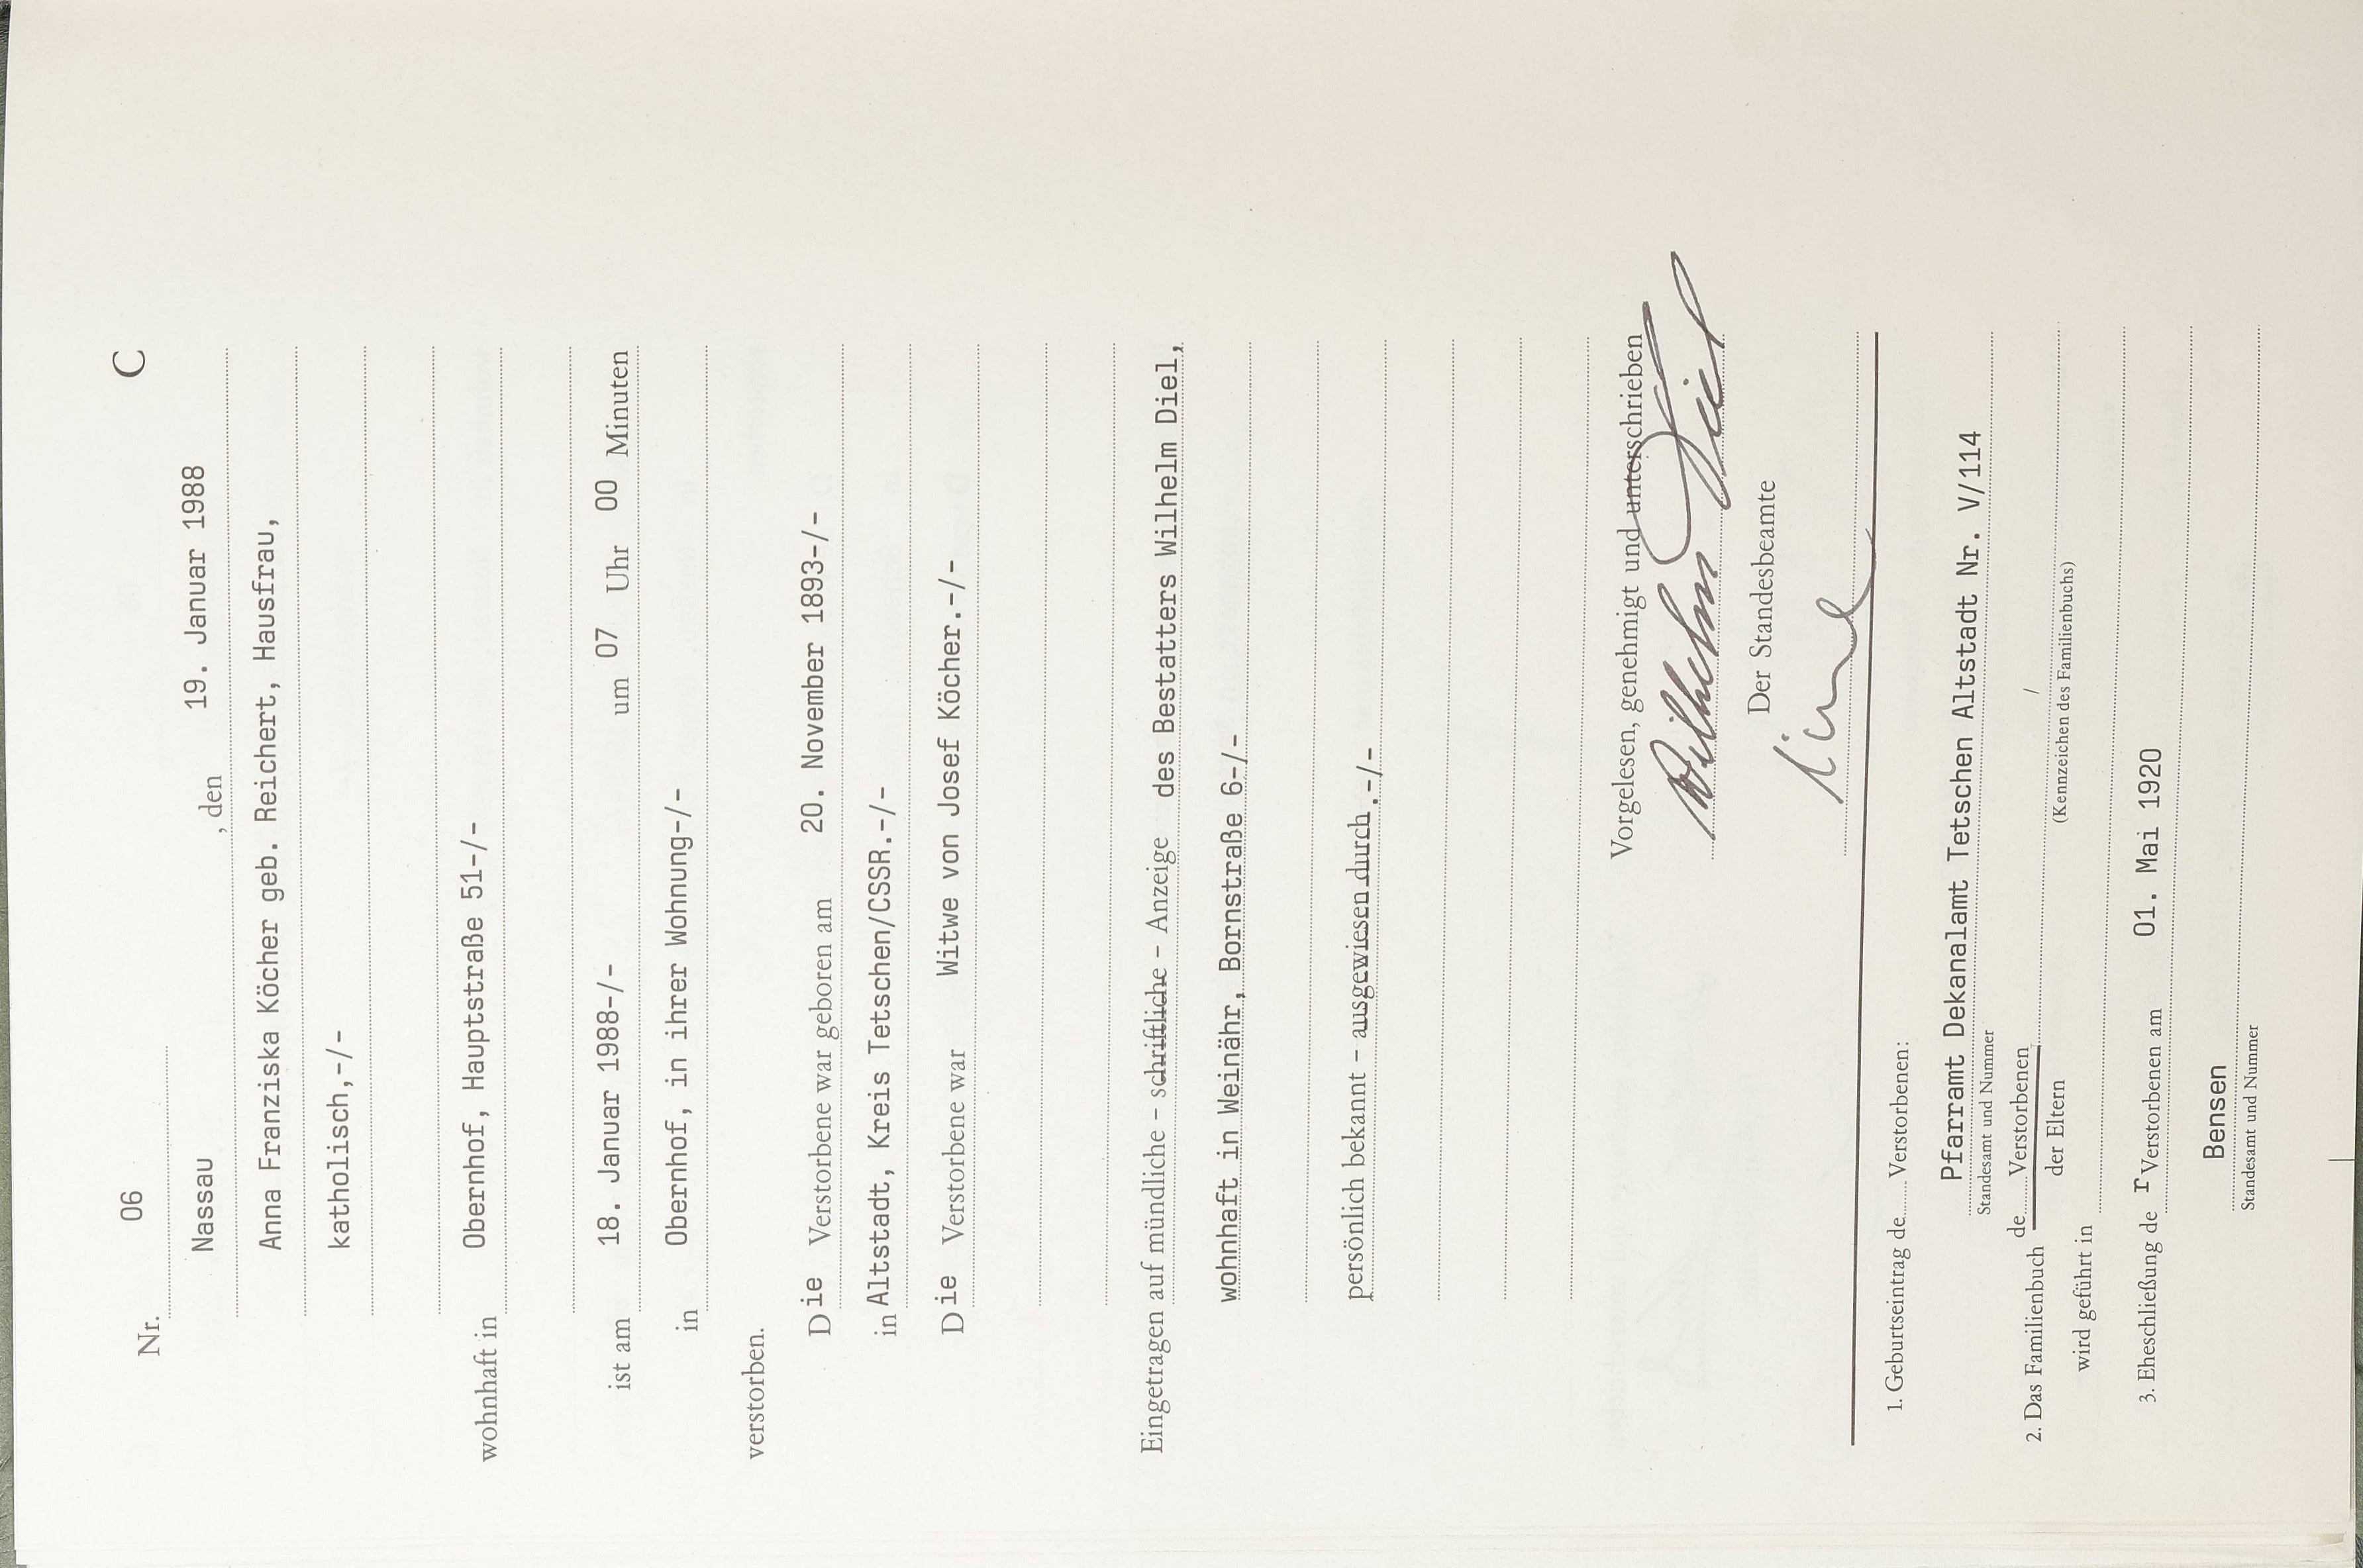 C
Nr. 06
Nassau, den 19. Januar 1988
Anna Franziska Köcher geb. Reichert, Hausfrau,
katholisch,-/-
wohnhaft in Obernhof, Hauptstraße 51-/-
ist am 18. Januar 1988-/- um 07 Uhr 00 Minuten
in Obernhof, in ihrer Wohnung-/-
verstorben.
Die Verstorbene war geboren am 20. November 1893-/-
in Altstadt, Kreis Tetschen/CSSR.-/-
Die Verstorbene war Witwe von Josef Köcher.-/-
Eingetragen auf mündliche - schriftliche - Anzeige des Bestatters Wilhelm Diel,
wohnhaft in Weinähr, Bornstraße 6-/-
persönlich bekannt - ausgewiesen durch.-/-
Vorgelesen, genehmigt und unterschrieben
Wilhelm Diel
Der Standesbeamte
1. Geburtseintrag de...... Verstorbenen:
Pfarramt Dekanalamt Tetschen Altstadt Nr. V/114
Standesamt und Nummer
2. Das Familienbuch de...... Verstorbenen /
der Eltern (Kennzeichen des Familienbuchs)
wird geführt in
3. Eheschließung de r Verstorbenen am 01. Mai 1920
Bensen
Standesamt und Nummer